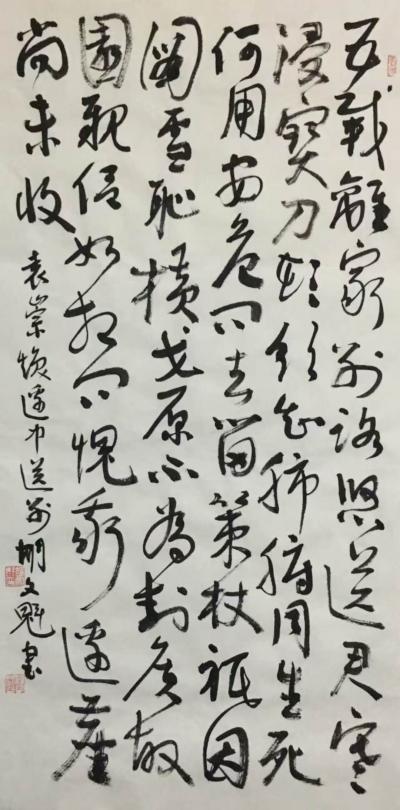 五載離家別路悠送君寒
浸寶刀頭欲知肺腑同生死
何用安危问去留策杖祇因
圖雪恥橫戈原不為封侯故
園親侶如相问愧我邊塵
尚未收
袁崇煥邊中送別 胡文魁書